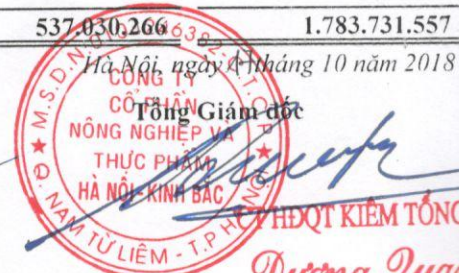 537.030.266 1.783.731.557
Hà Nội, ngày tháng 10 năm 2018
Tổng Giám đốc
CÔNG TY
CỔ PHẦN
NÔNG NGHIỆP VÀ
THỰC PHẨM
HÀ NỘI-KINH BẮC
M.S.D.N:
Q. NAM TỪ LIÊM - T.P HÀ NỘI
HĐQT KIÊM TỔNG
Dương Quang